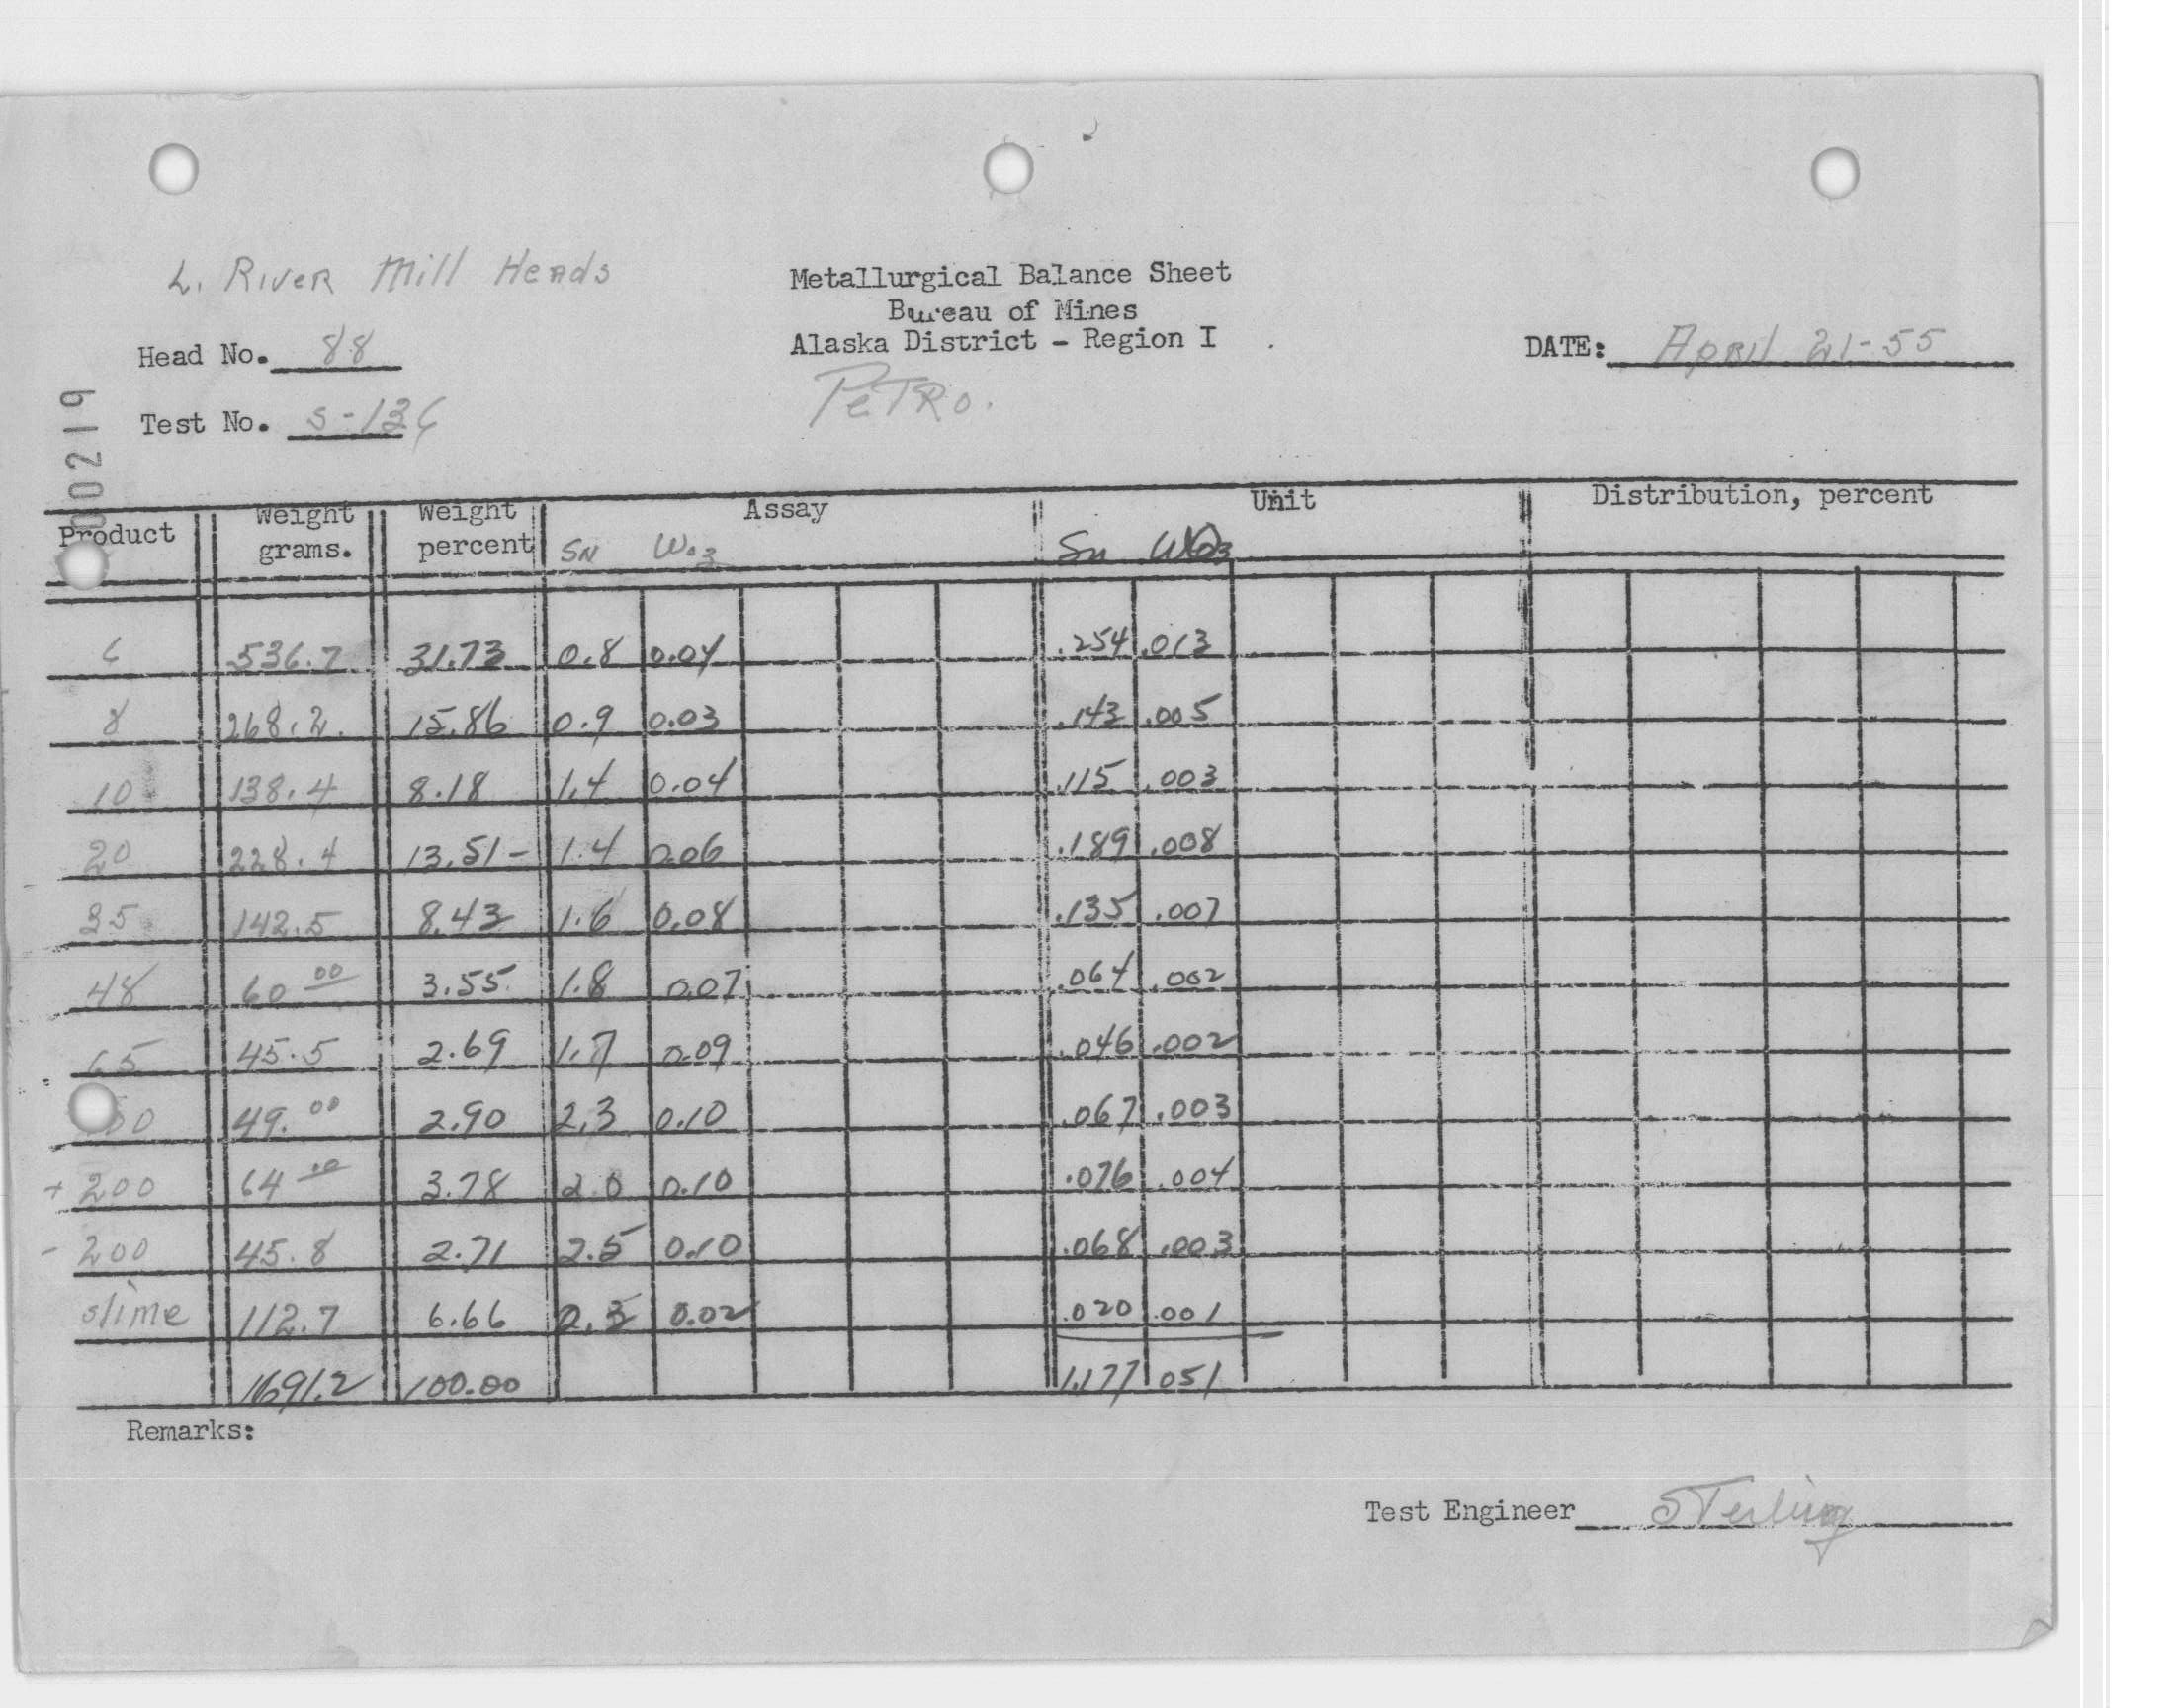 L. River Mill Heads
Metallurgical Balance Sheet
Bureau of Mines
Alaska District - Region I
Head No. 88
DATE: April 21-55
Petro.
Test No. S-136
00219
Product Weight grams. Weight percent Assay Unit Distribution, percent
Sn WO3 Sn WO3
6 536.7 31.73 0.8 0.04 .254 .013
8 268.2. 15.86 0.9 0.03 .143 .005
10 138.4 8.18 1.4 0.04 .115 .003
20 228.4 13.51- 1.4 0.06 .189 .008
35 142.5 8.43 1.6 0.08 .135 .007
48 60 00 3.55 1.8 0.07 .064 .002
65 45.5 2.69 1.7 0.09 .046 .002
49.00 2.90 2.3 0.10 .067 .003
+200 64.00 3.78 2.0 0.10 .076 .004
-200 45.8 2.71 2.5 0.10 .068 .003
slime 112.7 6.66 0.3 0.02 .020 .001
1691.2 100.00 1.177 051
Remarks:
Test Engineer Sterling